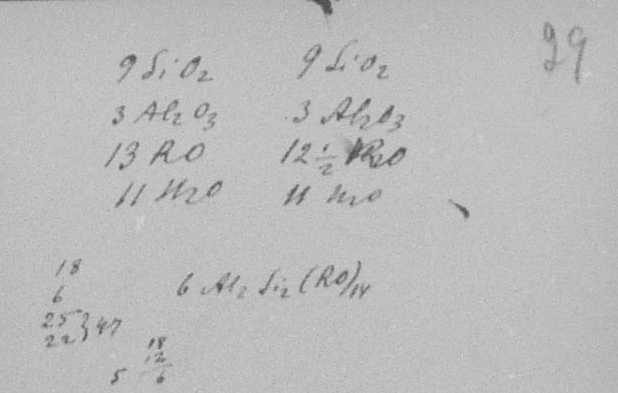 29
9 SiO2 9 SiO2
3 Al2O3 3 Al2O3
13 RO 12 1/2 RO
11 H2O 11 H2O
18
6 6 Al2 Si2 (RO)14
25
22 } 47
18
12
5 6